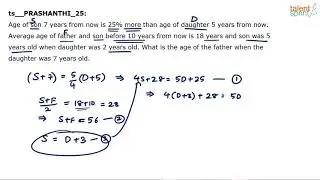 talent
sprint
ts__PRASHANTHI_25:
S D
Age of son 7 years from now is 25% more than age of daughter 5 years from now.
F
Average age of father and son before 10 years from now is 18 years and son was 5
years old when daughter was 2 years old. What is the age of the father when the
daughter was 7 years old.
(S+7) = 5/4 (D+5) ⇒ 4S+28 = 5D+25 — ①
⇒ 4(D+3)+28 = 5D
S+F/2 = 18+10 = 28
⇒ S+F = 56 — ②
S = D+3 — ③